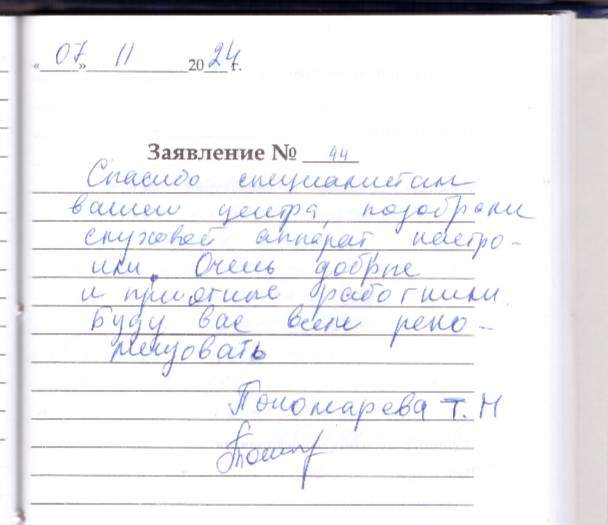 «07» 11 2024 г.
Заявление № 44
Спасибо специалистам
вашего центра, подобрали
слуховой аппарат настро-
или. Очень добрые
и приятные работники.
Буду вас всем реко-
мендовать
Пономарева Т. Н